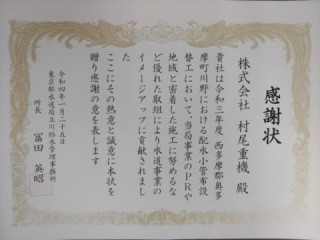 感謝状
株式会社 村尾重機 殿
貴社は令和三年度 西多摩郡奥多
摩町川野における配水小管布設
替工において、当局事業のPRや
地域と密着した施工に努めるな
ど優れた取組により水道事業の
イメージアップに貢献されまし
た
ここにその熱意と誠意に本状を
贈り感謝の意を表します
令和四年一月二十五日
東京都水道局立川給水管理事務所
所長 冨田 英昭